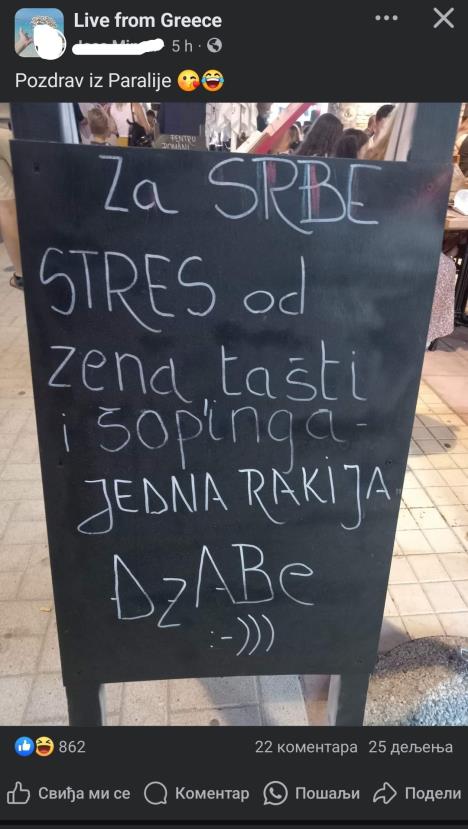 Live from Greece
5 h
Pozdrav iz Paralije 😘😂
PENTRU
ROMANI
Za SRBE
STRES od
zena, tašti
i šopinga-
JEDNA RAKIJA
DzABe
:-)))
862
22 коментара 25 дељења
Свиђа ми се Коментар Пошаљи Подели